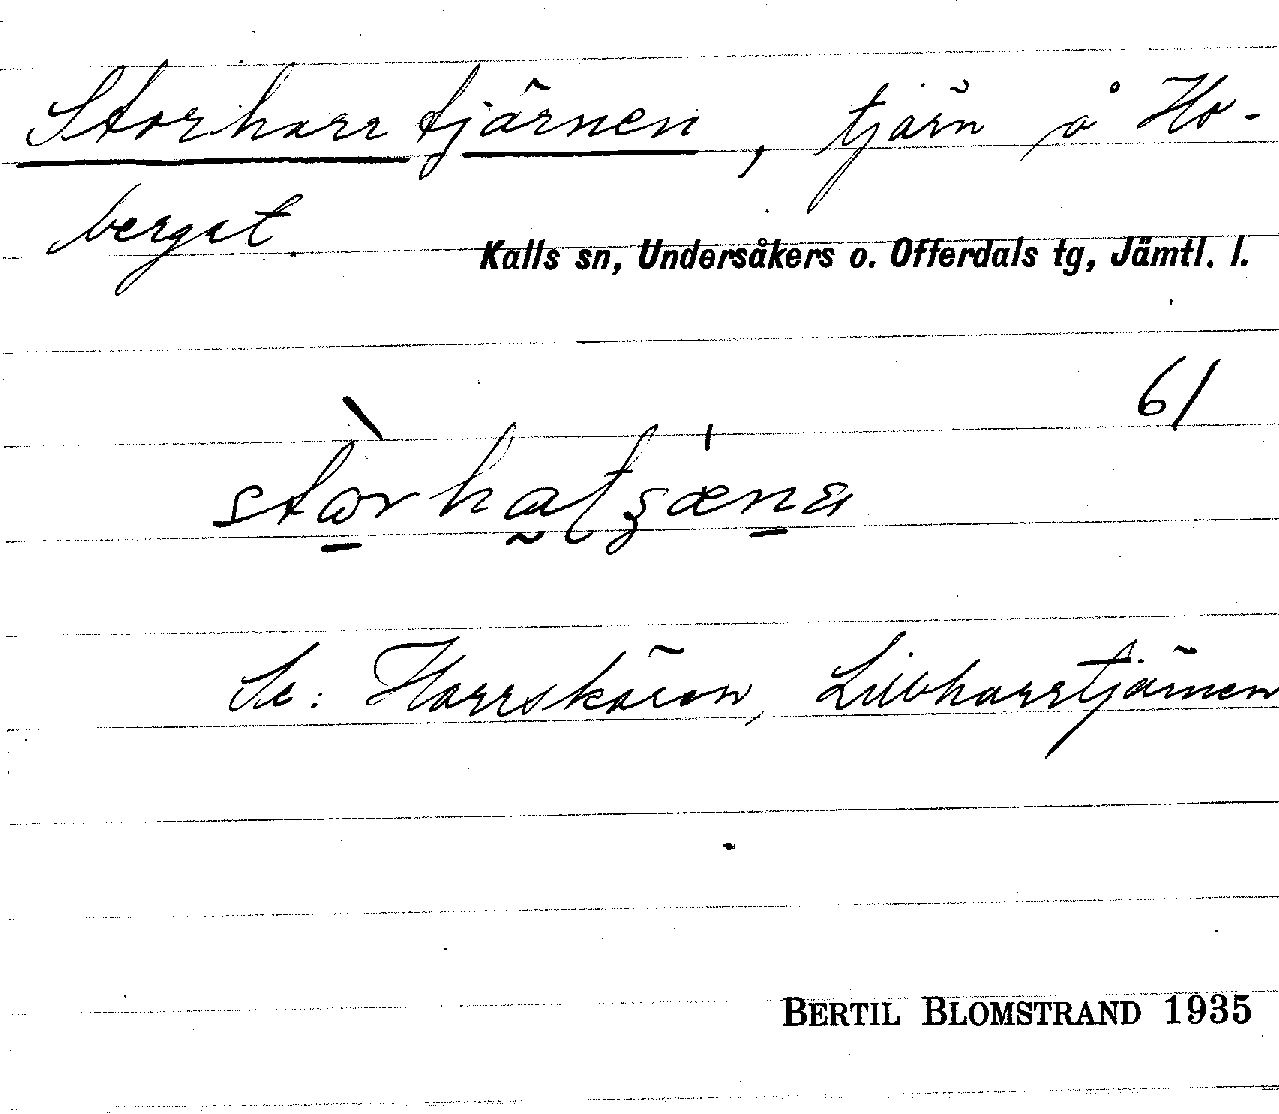 Storharrtjärnen, tjärn å Ho-
berget.
Kalls sn, Undersåkers o. Offerdals tg, Jämtl. l.
61
Se: Harrskären, Lillharrtjärnen
BERTIL BLOMSTRAND 1935